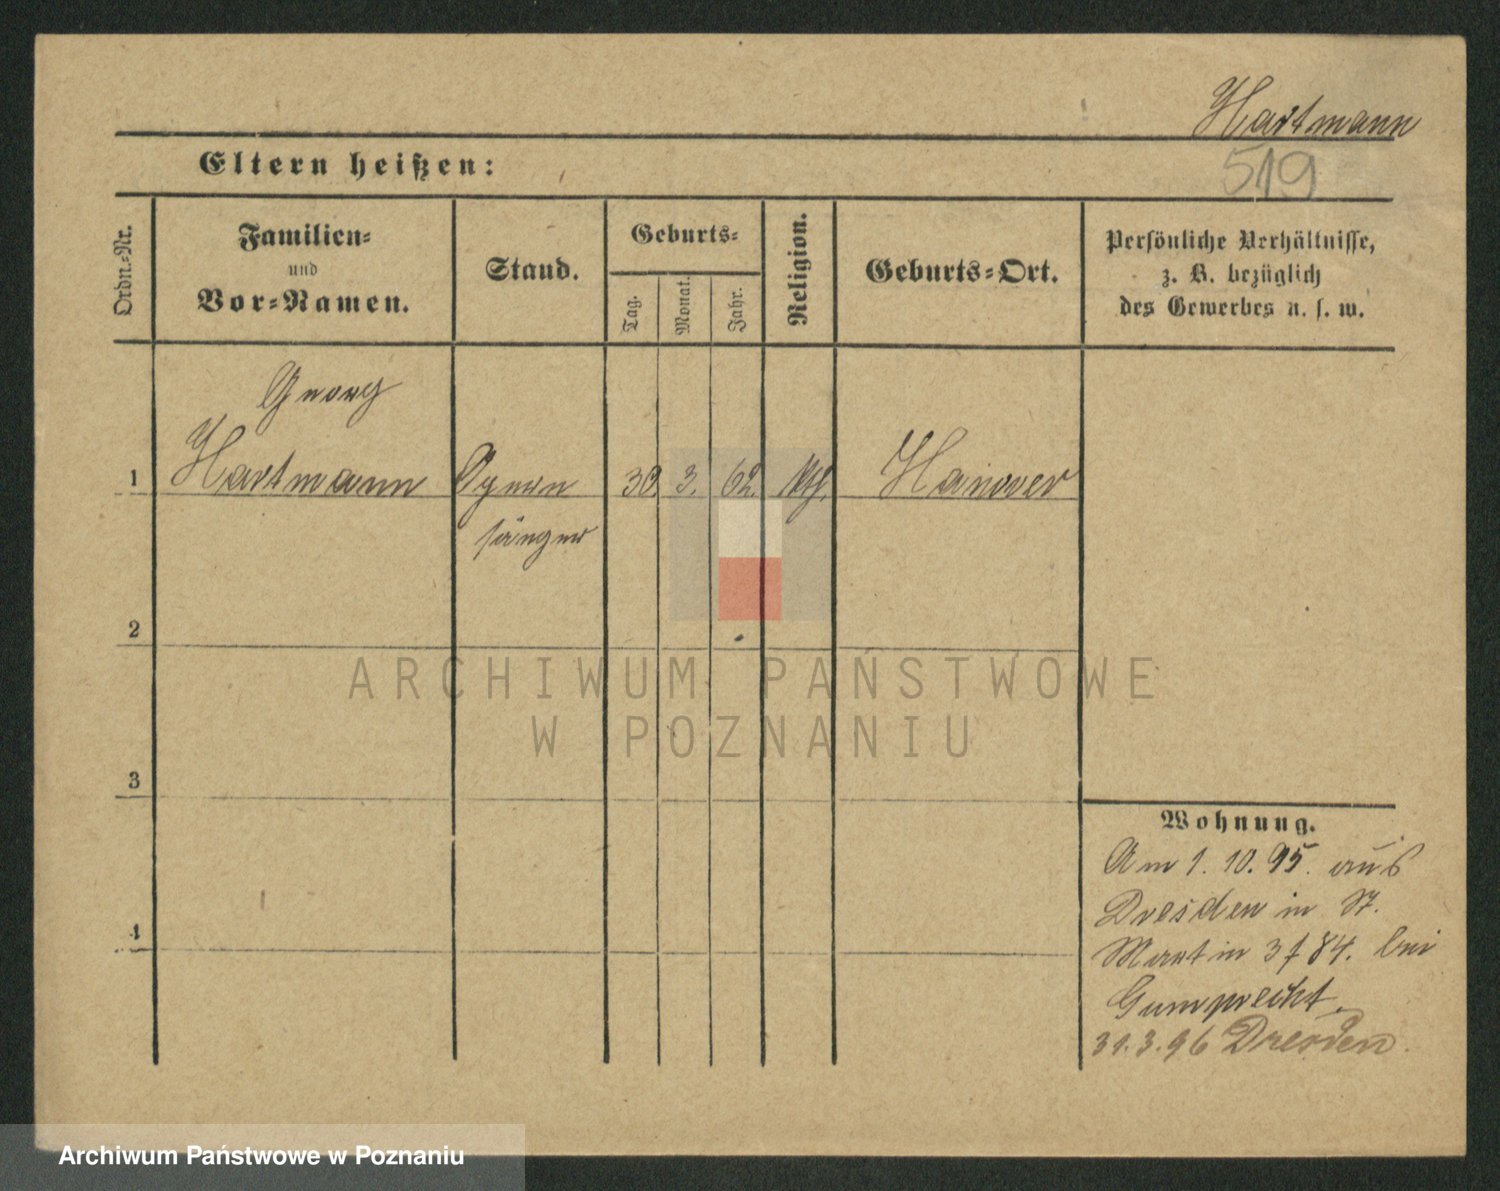 Hartmann
519
Eltern heißen:
Ordn.-Nr.
Familien-
und
Vor-Namen.
Stand.
Geburts-
Tag.
Monat.
Jahr.
Religion.
Geburts-Ort.
Persönliche Verhältnisse,
z. B. bezüglich
des Gewerbes u. s. w.
Georg
1 Hartmann Opern 30. 3. 62. Hanover
sänger
2
3
4
Wohnung.
Am 1. 10. 95. aus
Dresden in St.
Martin 84. bei
Gumprecht.
31.3.96 Dresden.
ARCHIWUM PAŃSTWOWE
W POZNANIU
Archiwum Państwowe w Poznaniu